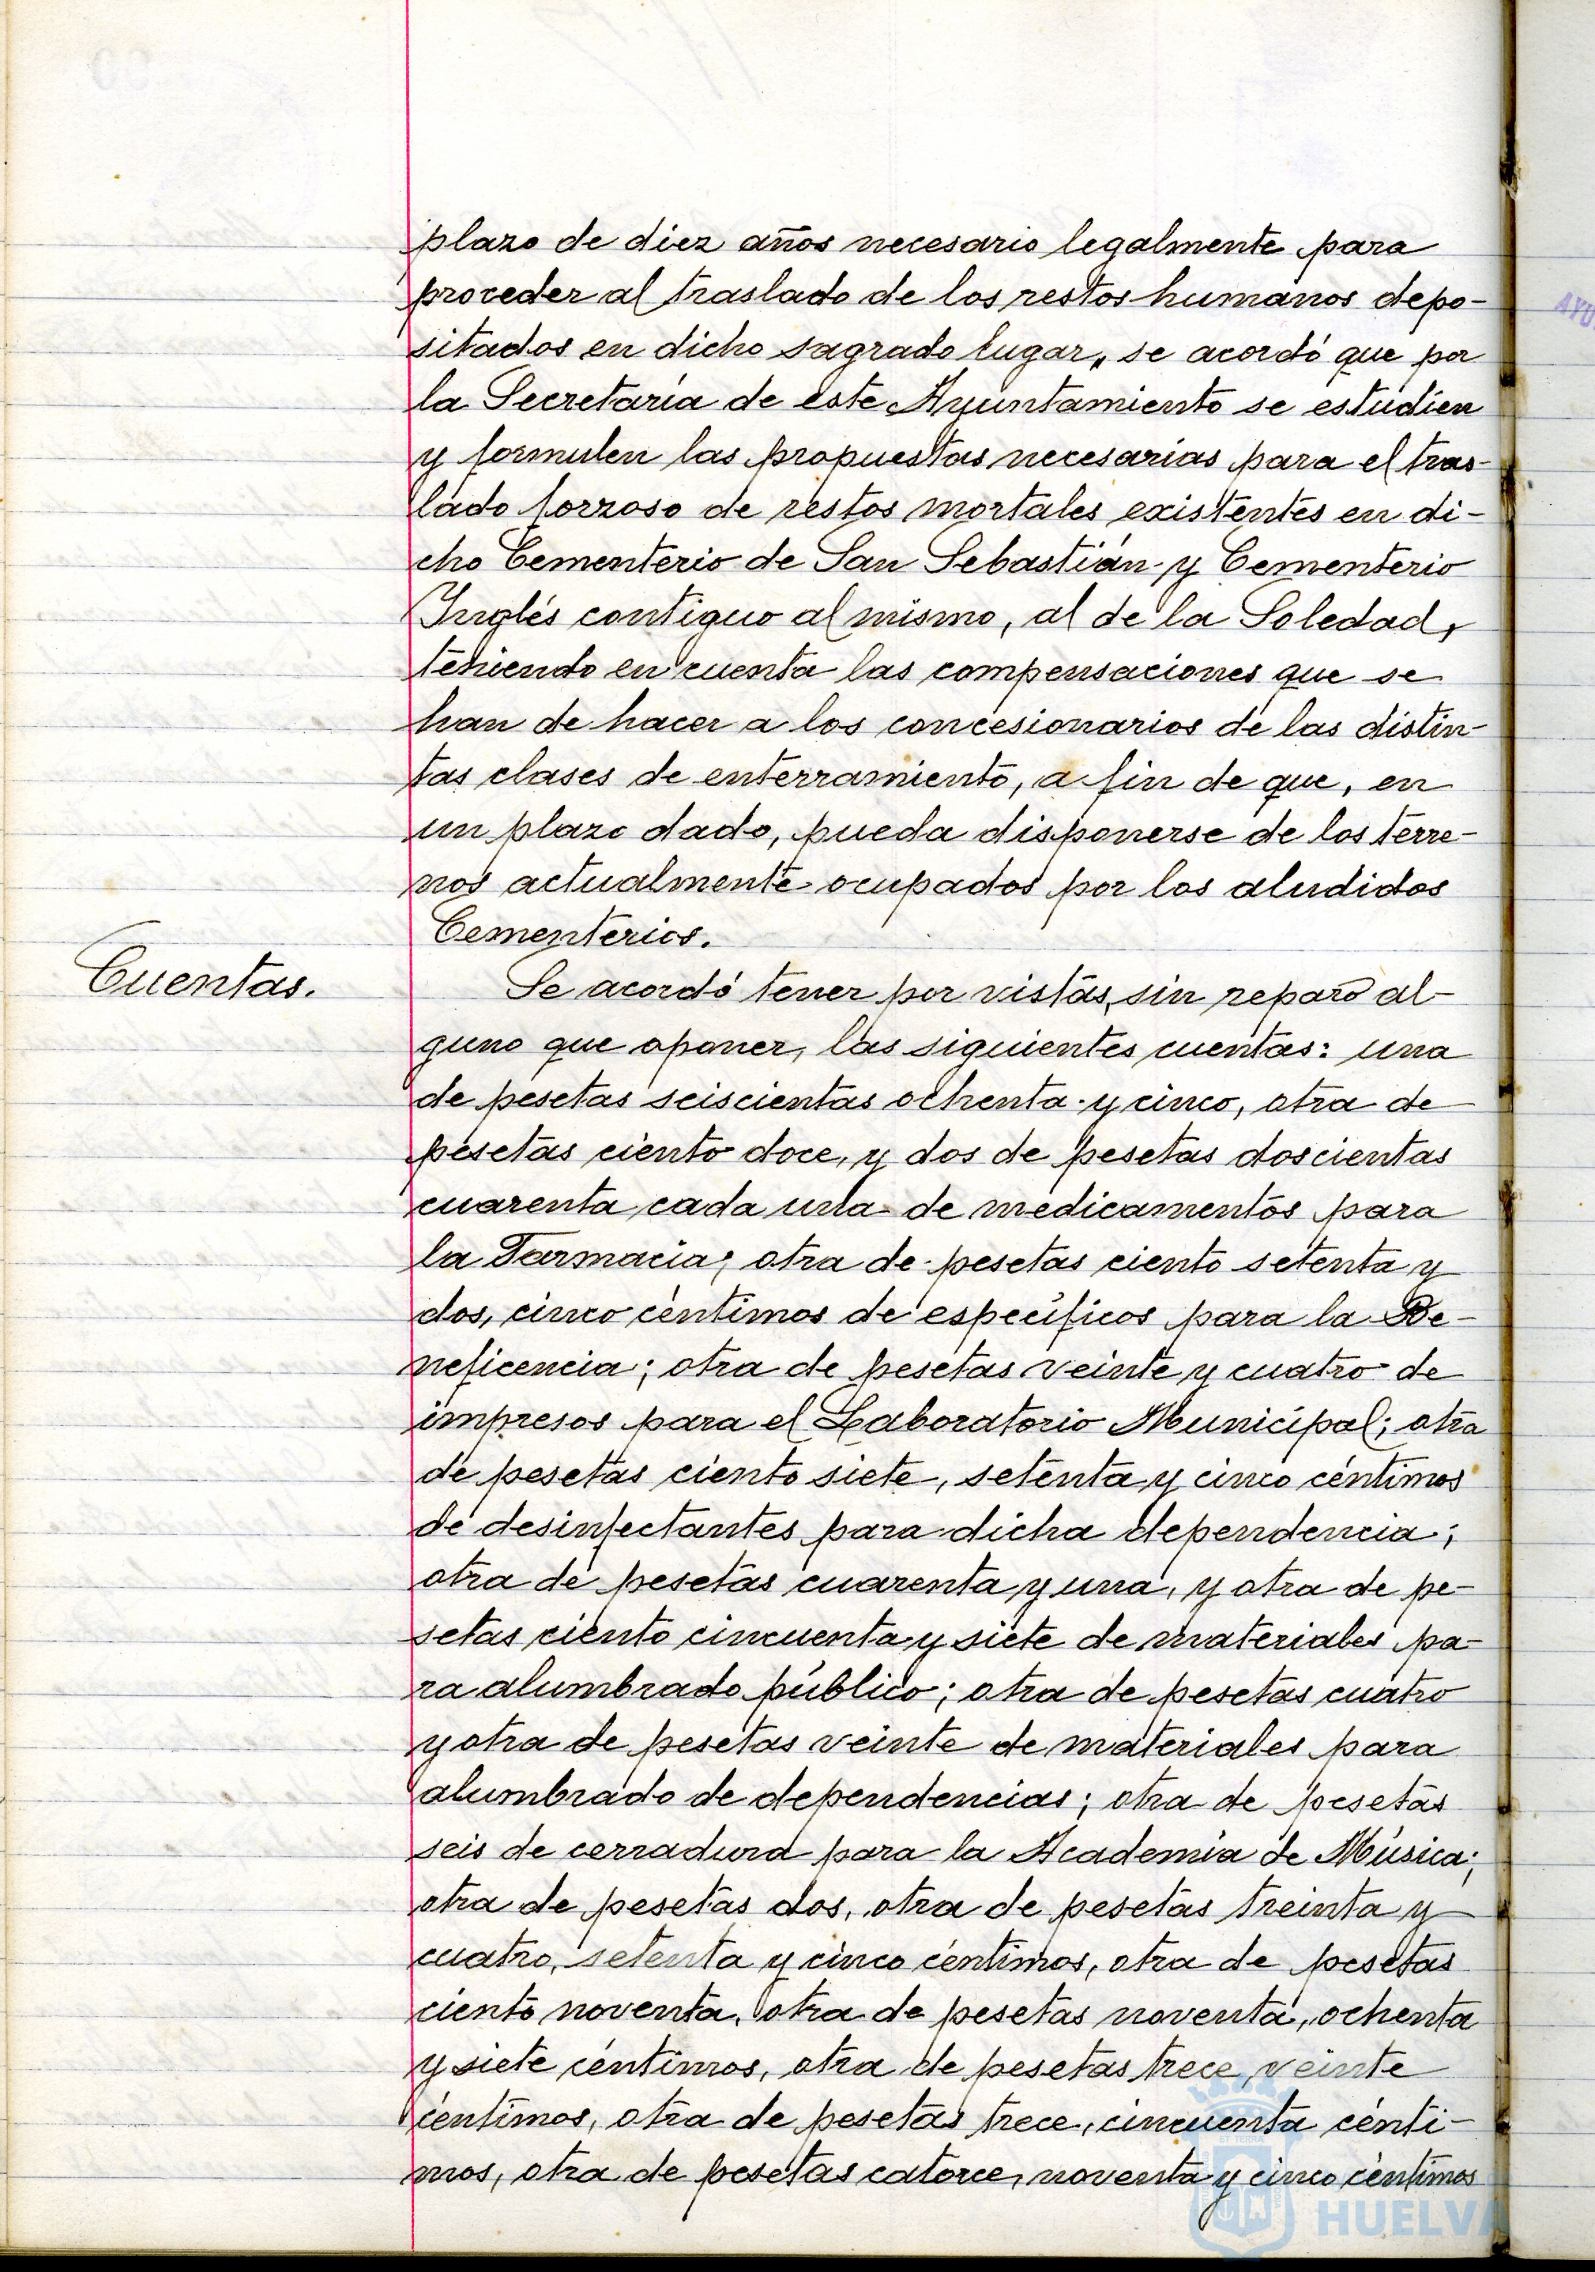 plazo de diez años necesario legalmente para
proceder al traslado de los restos humanos depo-
sitados en dicho sagrado lugar, se acordó que por
la Secretaría de este Ayuntamiento se estudien
y formulen las propuestas necesarias para el tras-
lado forzoso de restos mortales existentes en di-
cho Cementerio de San Sebastián y Cementerio
Inglés contiguo al mismo, al de la Soledad,
teniendo en cuenta las compensaciones que se
han de hacer a los concesionarios de las distin-
tas clases de enterramiento, a fin de que, en
un plazo dado, pueda disponerse de los terre-
nos actualmente ocupados por los aludidos
Cementerios.
Cuentas.
Se acordó tener por vistas, sin reparo al-
guno que oponer, las siguientes cuentas: una
de pesetas seiscientas ochenta y cinco, otra de
pesetas ciento doce, y dos de pesetas doscientas
cuarenta cada una de medicamentos para
la Farmacia; otra de pesetas ciento setenta y
dos, cinco céntimos de específicos para la Be-
neficencia; otra de pesetas veinte y cuatro de
impresos para el Laboratorio Municipal; otra
de pesetas ciento siete, setenta y cinco céntimos
de desinfectantes para dicha dependencia;
otra de pesetas cuarenta y una, y otra de pe-
setas ciento cincuenta y siete de materiales pa-
ra alumbrado público; otra de pesetas cuatro
y otra de pesetas veinte de materiales para
alumbrado de dependencias; otra de pesetas
seis de cerradura para la Academia de Música;
otra de pesetas dos, otra de pesetas treinta y
cuatro, setenta y cinco céntimos, otra de pesetas
ciento noventa, otra de pesetas noventa, ochenta
y siete céntimos, otra de pesetas trece, veinte
céntimos, otra de pesetas trece, cincuenta cénti-
mos, otra de pesetas catorce, noventa y cinco céntimos
HUELVA